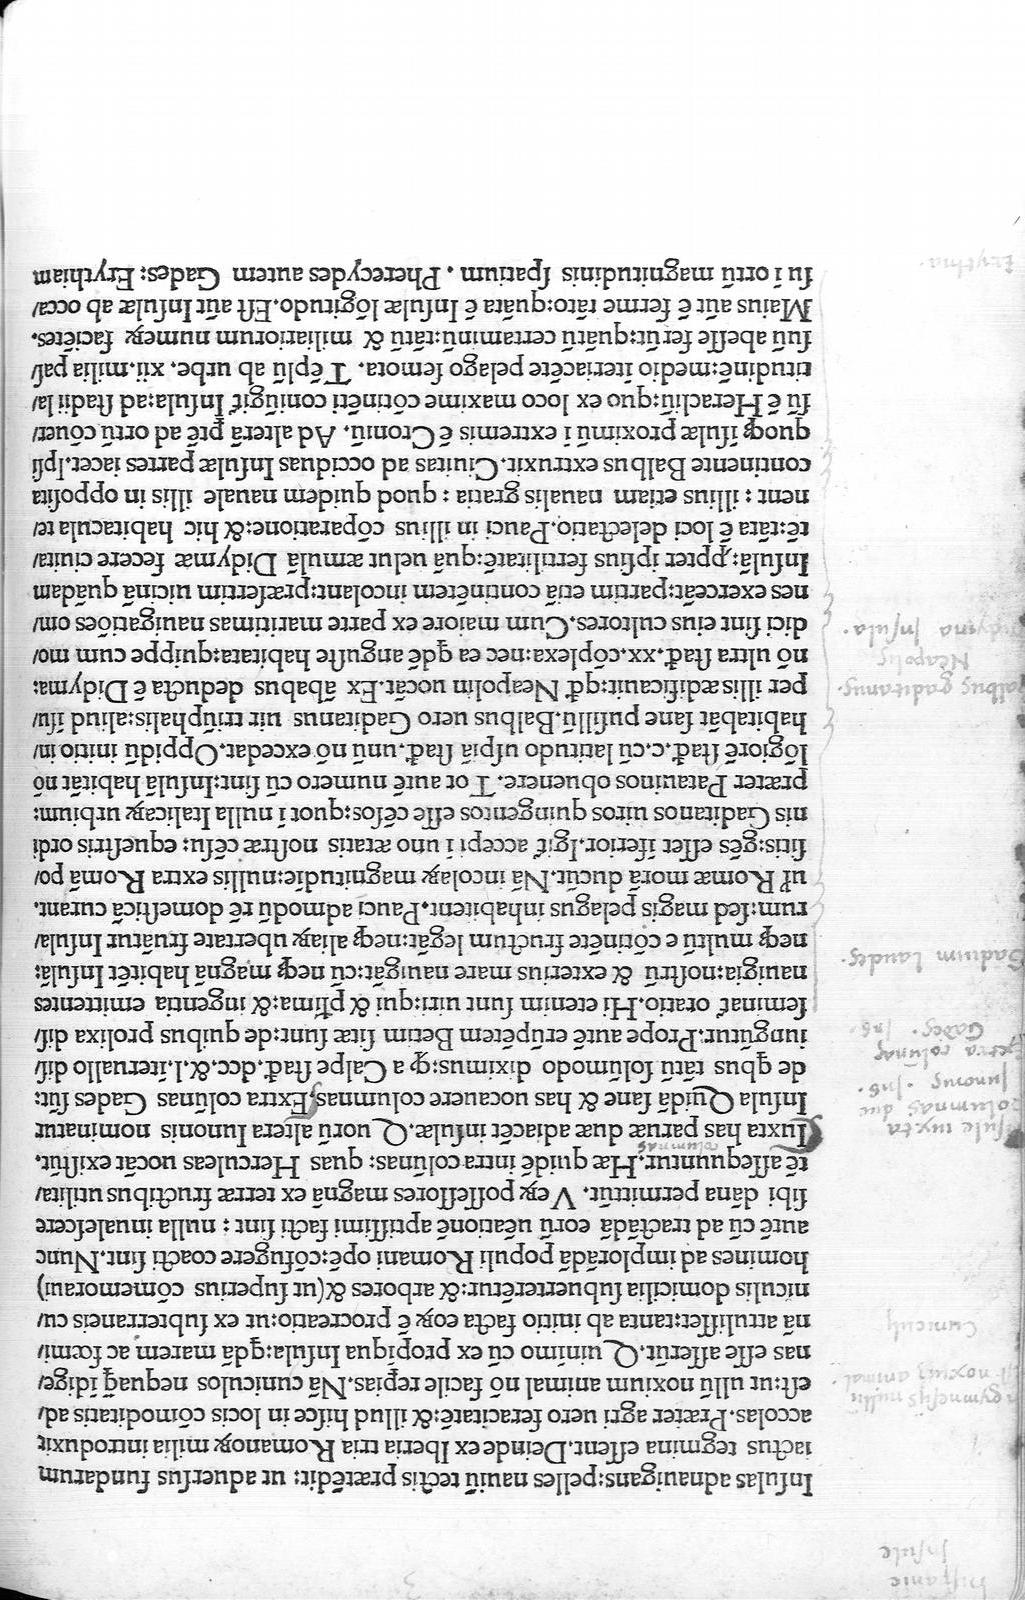 Hispanie
Insule
Insulas adnauigans:pelles nauiũ tectis prætẽdit: ut aduersus fundarum
iactus tegmina essent.Deinde ex Iberia tria Romanoꝝ milia introduxit
accolas.Præter agri uero feracitatẽ:& illud hisce in locis cõmoditatis ad/
est:ut ullũ noxium animal nõ facile reꝑias.Nã cuniculos nequaꝗ̃ ĩdige/
nas esse asserũt.Q uinimo cũ ex propiqua Insula:ꝗdã marem ac fœmi/
nã attulisset:tanta ab initio facta eoꝝ ẽ procreatio:ut ex subterraneis cu/
niculis domicilia subuerterẽtur:& arbores &(ut superius cõmemoraui)
homines ad implorãdã populi Romani opẽ:cõfugere coacti sint.Nunc
autẽ cũ ad tractãdã eorũ uẽationẽ aptissimi facti sint: nulla inualescere
sibi dãna permittũt. Veꝝ possessores magnã ex terræ fructibus utilita/
tẽ assequuntur.Hæ quidẽ intra colũnas: quas Herculeas uocãt existũt.
columnas
Iuxta has paruæ duæ adiacẽt insulæ.Q uorũ altera Iunonis nominatur
Insula Quidã sane & has uocauere columnas;Extra colũnas Gades sũt:
de ꝗbus tãtũ solũmodo diximus:ꝙ a Calpe stađ.dcc.&.l.ĩteruallo dis/
iungũtur.Prope autẽ erũpẽtem Betim sitæ sunt:de quibus prolixa dis/
seminat᷑ oratio.Hi etenim sunt uiri:qui & pľima:& ingentia emittentes
nauigia:nostrũ & exterius mare nauigãt:cũ neqꝫ magnã habitẽt Insulã:
neqꝫ multũ e cõtinẽte fructum legãt:neqꝫ aliaꝝ ubertate fruãtur Insula/
rum:sed magis pelagus inhabitent.Pauci admodũ rẽ domesticã curant,
uľ Romæ morã ducũt.Nã incolaꝝ magnitudĩe:nullis extra Romã po/
sitis:gẽs esset ĩferior.Igit᷑ accepi ĩ uno ætatis nostræ cẽsu: equestris ordi
nis Gaditanos uiros quingentos esse cẽsos:quot ĩ nulla Italicaꝝ urbium:
præter Patauinos obuenere. T ot autẽ numero cũ sint:Insulã habitãt nõ
lõgiorẽ stađ.c.cũ latitudo uspiã stađ.unũ nõ excedat.Oppidũ initio in/
habitabãt sane pusillũ.Balbus uero Gaditanus uir triũphalis:aliud ĩsu/
per illis ædificauit:qđ Neapolin uocãt.Ex ãbabus deducta ẽ Didyma:
nõ ultra stađ.xx.cõplexa:nec ea ꝗdẽ anguste habitata:quippe cum mo/
dici sint eius cultores.Cum maiore ex parte maritimas nauigatiões om/
nes exerceãt:partim etiã continẽtem incolant:præsertim uicinã quãdam
Insulã:ꝓpter ipsius fertilitatẽ:quã uelut æmulã Didymæ fecere ciuita/
tẽ:tãta ẽ loci delectatio.Pauci in illius cõparatione:& hic habitacula te/
nent : illius etiam naualis gratia : quod quidem nauale illis in opposita
continente Balbus extruxit.Ciuitas ad occiduas Insulæ partes iacet.Ipsi
quoqꝫ ĩsulæ proximũ ĩ extremis ẽ Croniũ. Ad alterã ꝑtẽ ad ortũ cõuer/
sũ ẽ Heracliũ:quo ex loco maxime cõtinẽti coniũgit᷑ Insula:ad stadii la/
titudinẽ:medio ĩteriacẽte pelago semota. T ẽplũ ab urbe. xii.milia pas/
suũ abesse ferũt:quãtũ certaminũ:tãtũ & miliariorum numeꝝ facientes.
Maius aũt ẽ ferme rãto:quãta ẽ Insulæ lõgitudo.Est aũt Insulæ ab occa/
su ĩ ortũ magnitudinis spatium . Pherecydes autem Gades: Erythiam
In gymnesijs nullũ
est noxium animal.
Cuniculi
Insule iuxta
columnas due
Iunonis . Ins.
Extra colũnas
Gades. Ins.
Gadium laudes.
Balbus gaditanus.
Neapolis
Didyma Insula.
Erythia.